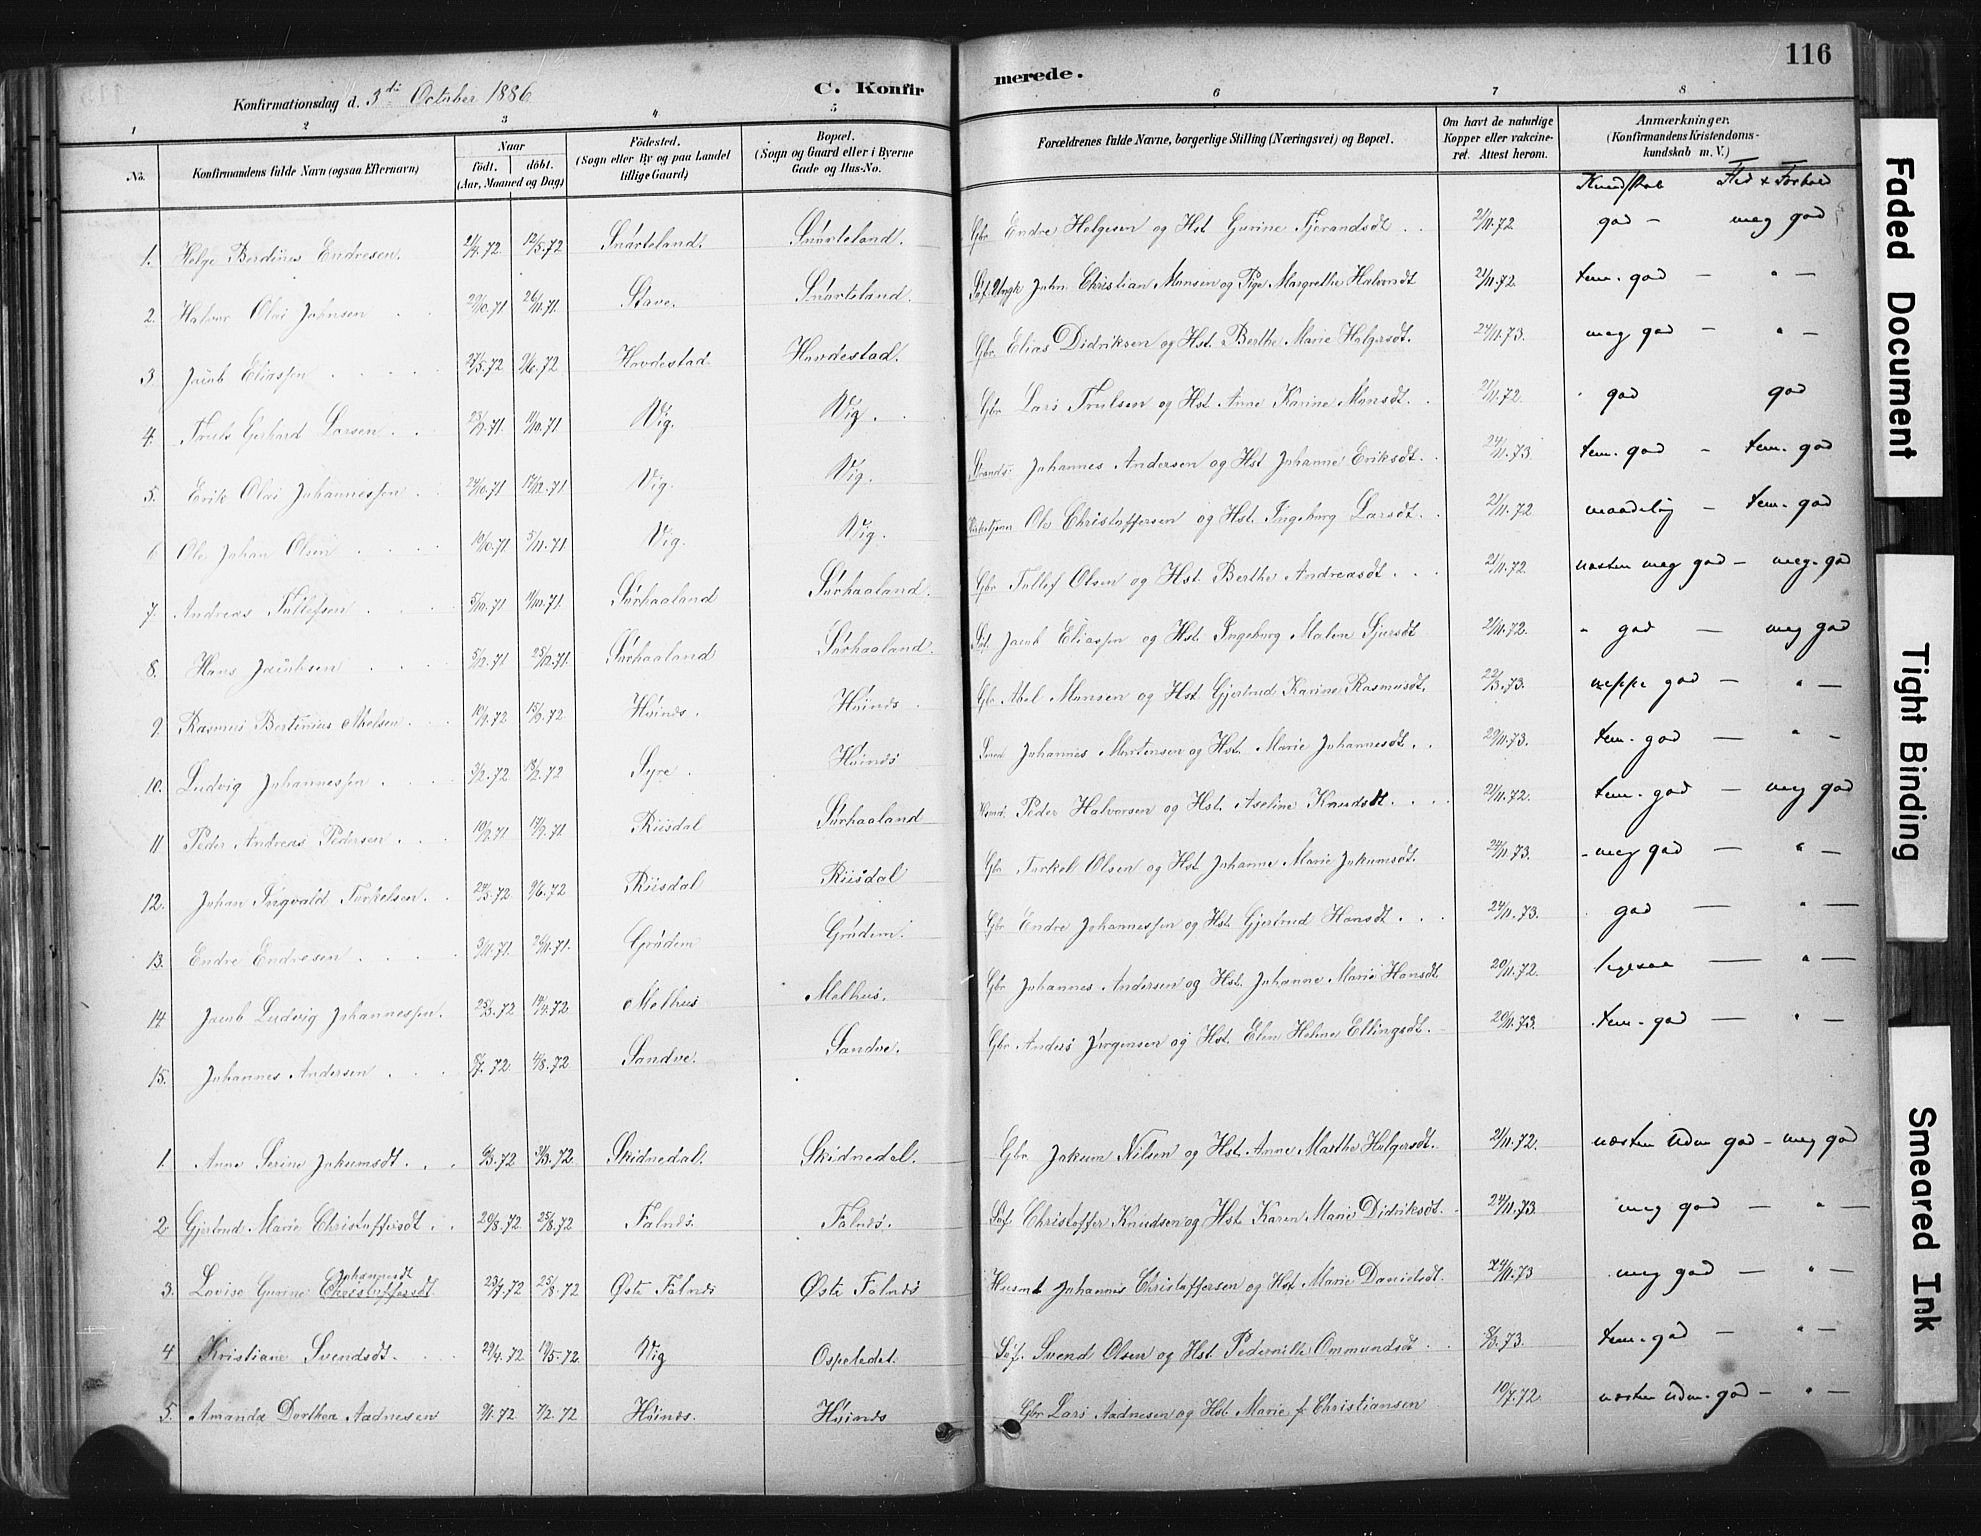 116
Konfirmationsdag d. 3di October 1886 C. Konfirmerede.
1 2 3 4 5 6 7 8
No. Konfirmandens fulde Navn (ogsaa Efternavn) Naar født. døbt. (Aar, Maaned og Dag) Fødested. (Sogn eller By og paa Landet tillige Gaard) Bopæl. (Sogn og Gaard eller i Byerne Gade og Hus-No. Forældrenes fulde Navne, borgerlige Stilling (Næringsvei) og Bopæl. Om havt de naturlige Kopper eller vakcineret. Attest herom. Anmærkninger. (Konfirmandens Kristendomskundskab m. V.)
Kundskab Flid & Forhold
1. Helge Berdines Endresen. 21/4.72 12/5.72 Snarteland. Snarteland. Gbr Endre Helgesen og Hst Gurine Tjerandsdt 21/11.72 god - meg god
2. Halvor Olai Johnsen 29/10.71 26/11.71. Stave. Snarteland. Søf. Ungk John Christian Monsen og Pige Margrethe Halvorsdt 21/11.72 tem. god - " -
3 Jacob Eliassen 27/5.72 9/6.72 Hovdestad Hovdestad. Gbr. Elias Didriksen og Hst. Berthe Marie Helgesdt. 24/11.73 meg god - " -
4. Truls Gerhard Larsen 23/9.71 11/10.71 Vig. Vig. Gbr Lars Trulsen og Hst. Anne Karine Monsdt. 21/11.72. god god
5. Eerik Olai Johannessen 24/10.71 17/12.71 Vig. Vig. Strands. Johannes Andersen og Hst Johanne Eriksdt. 24/11.73 tem. god - tem. god
6 Ole Johan Olsen 10/10.71 5/11.71. Vig. Vig. Ole Christoffersen og Hst. Ingeborg Larsdt. 21/11.72 maadelig - tem. god
7. Andreas Tollefsen 5/10.71 Sørhaaland Sørhaaland. Gbr Tollef Olsen og Hst. Berthe Andreasdt 21/11.72 næsten meg god - meg. god
8. Hans Jacobsen 5/12.71 25/12.71. Sørhaaland Sørhaaland. Søf. Jacob Eliassen og Hst. Ingeborg Malene Sjursdt 21/11.72. " god - meg god
9. Rasmus Bertinius Abelsen 15/9.72 Høinæs. Høinæs. Gbr Abel Monsen og Hst Gjertrud Karine Rasmusdt. 22/3.73. neppe god - " -
10. Ludvig Johannessen 3/2.72 18/2.72 Syre. Høinæs Johannes Mortensen og Hst. Marie Johannesdt. 29/11.73. tem. god - " -
11 Peder Andreas Pedersen 10/9.71 17/9.71. Riisdal Sørhaaland Peder Halvorsen og Hst. Aseline Knudsdt. 21/11.72. tem. god - meg god
12. Johan Ingvald Torkelsen. 24/5.72 9/6.72 Riisdal Riisdal Gbr Torkel Olsen og Hst Johanne Marie Jokumsdt. 24/11.73. - meg god - " -
13. Endre Endresen 3/11.71. 26/11.71. Grødem Grødem. Gbr Endre Johannessen og Hst. Gjertrud Hansdt. 24/11.73. god - " -
14 Jacob Ludvig Johannessen. 25/3.72 14/4.72 Melhus Melhus. Gbr Johannes Andersen og Hst. Johanne Marie Hansdt 20/11.72. ligesaa - " -
15. Johannes Andersen 8/7.72. 4/8.72 Sandve. Sandve. Gbr Anders Jørgensen og Hst. Elen Heline Ellingsdt. 20/11.73. tem. god - " -
1. Anne Serine Jokumsdt. 6/3.72 31/3.72. Skidnedal. Skidnedal. Gbr Jokum Nilsen og Hst. Anne Marthe Helgesdt. 21/11.72. næsten udm god - meg god
2 Gjertrud Marie Christoffersdt. 20/8.72 25/8.72 Falnæs. Falnæs. Søf. Christoffer Knudsen og Hst Karen Marie Didriksdt. 24/11.73. meg god - " -
3. Lovise Gurine Johannesdt Christoffersdt 23/7.72 25/8.72 Øste Falnæs Øste Falnæs Husmd Johannes Christoffersen og Hst Marie Danielsdt. 24/11.73 meg god - " -
4 Kristiane Svendsdt. 29/4.72 19/5.72. Vig Ospeledet. Søf. Svend Olsen og Hst Pedernille Ommundsdt 8/3.73. tem. god - " -
5. Amanda Dorthea Aadnesen 9/1.72 7/2.72 Høinæs. Høinæs Gbr Lars Aadnesen og Hst. Marie f. Christiansen 10/7.72. næsten udm. god - " -
Faded Document
Tight Binding
Smeared Ink